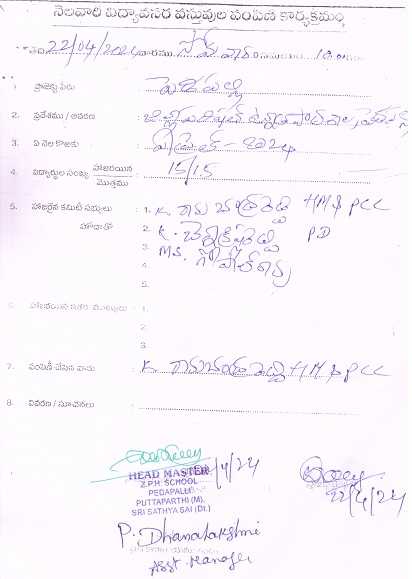 నెలవారీ విద్యావసర వస్తువుల పంపిణీ కార్యక్రమం
తేది 22/04/2024 వారము సోమవారం సమయం
1. ప్రాజెక్టు పేరు పెదపల్లి
2. ప్రదేశము / ఆవరణ జిల్లా పరిషత్ ఉన్నత పాఠశాల,
3. ఏ నెల కొఱకు ఏప్రిల్ - 2024
4. విద్యార్థుల సంఖ్య హాజరయిన / మొత్తము 15/15
5. హాజరైన కమిటీ సభ్యులు హోదాతో
1. K. రామచంద్రారెడ్డి HM & PCC
2. K. PD
3. M.S.
4.
5.
6. హాజరయిన ఇతర ముఖ్యులు : 1.
2.
3.
7. పంపిణీ చేసిన వారు : K. రామచంద్రారెడ్డి HM & PCC
8. వివరణ / సూచనలు :
HEAD MASTER
Z.P.H. SCHOOL
PEDAPALLI
PUTTAPARTHI (M).
SRI SATHYA SAI (Dt.)
22/4/24
P. Dhanalakshmi
Asst. Manager